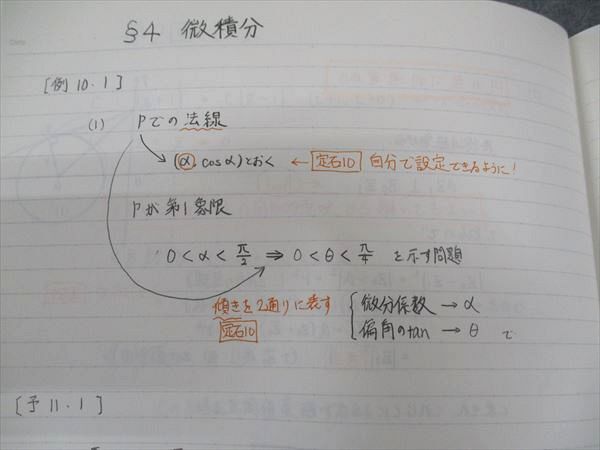 §4 微積分
[例10.1]
(1) Pでの法線
(α, cosα)とおく ← 定石10 自分で設定できるように!
Pが第1象限
0<α<π/2 ⇒ 0<θ<π/4 を示す問題
傾きを2通りに表す { 微分係数 → α
定石10 偏角のtan → θ で
[予11.1]